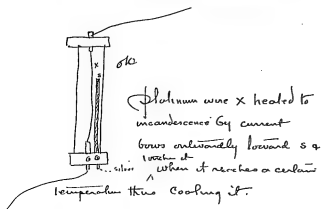 x
ok
s
platinum wire x heated to
incandescence by current
bows outwardly toward s &
touches it
silver when it reaches a certain
temperature thus cooling it.